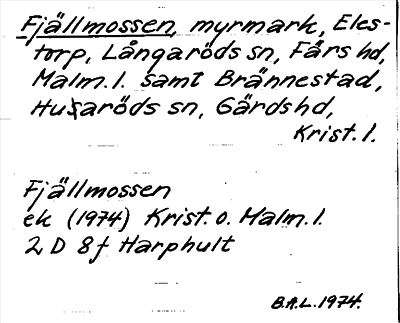 Fjällmossen, myrmark, Eles-
torp, Långaröds sn, Färs hd,
Malm. l. samt Brännestad,
Huaröds sn, Gärds hd,
Krist. l.
Fjällmossen
ek (1974) Krist. o. Malm. l.
2 D 8f Harphult
B.A.L. 1974.